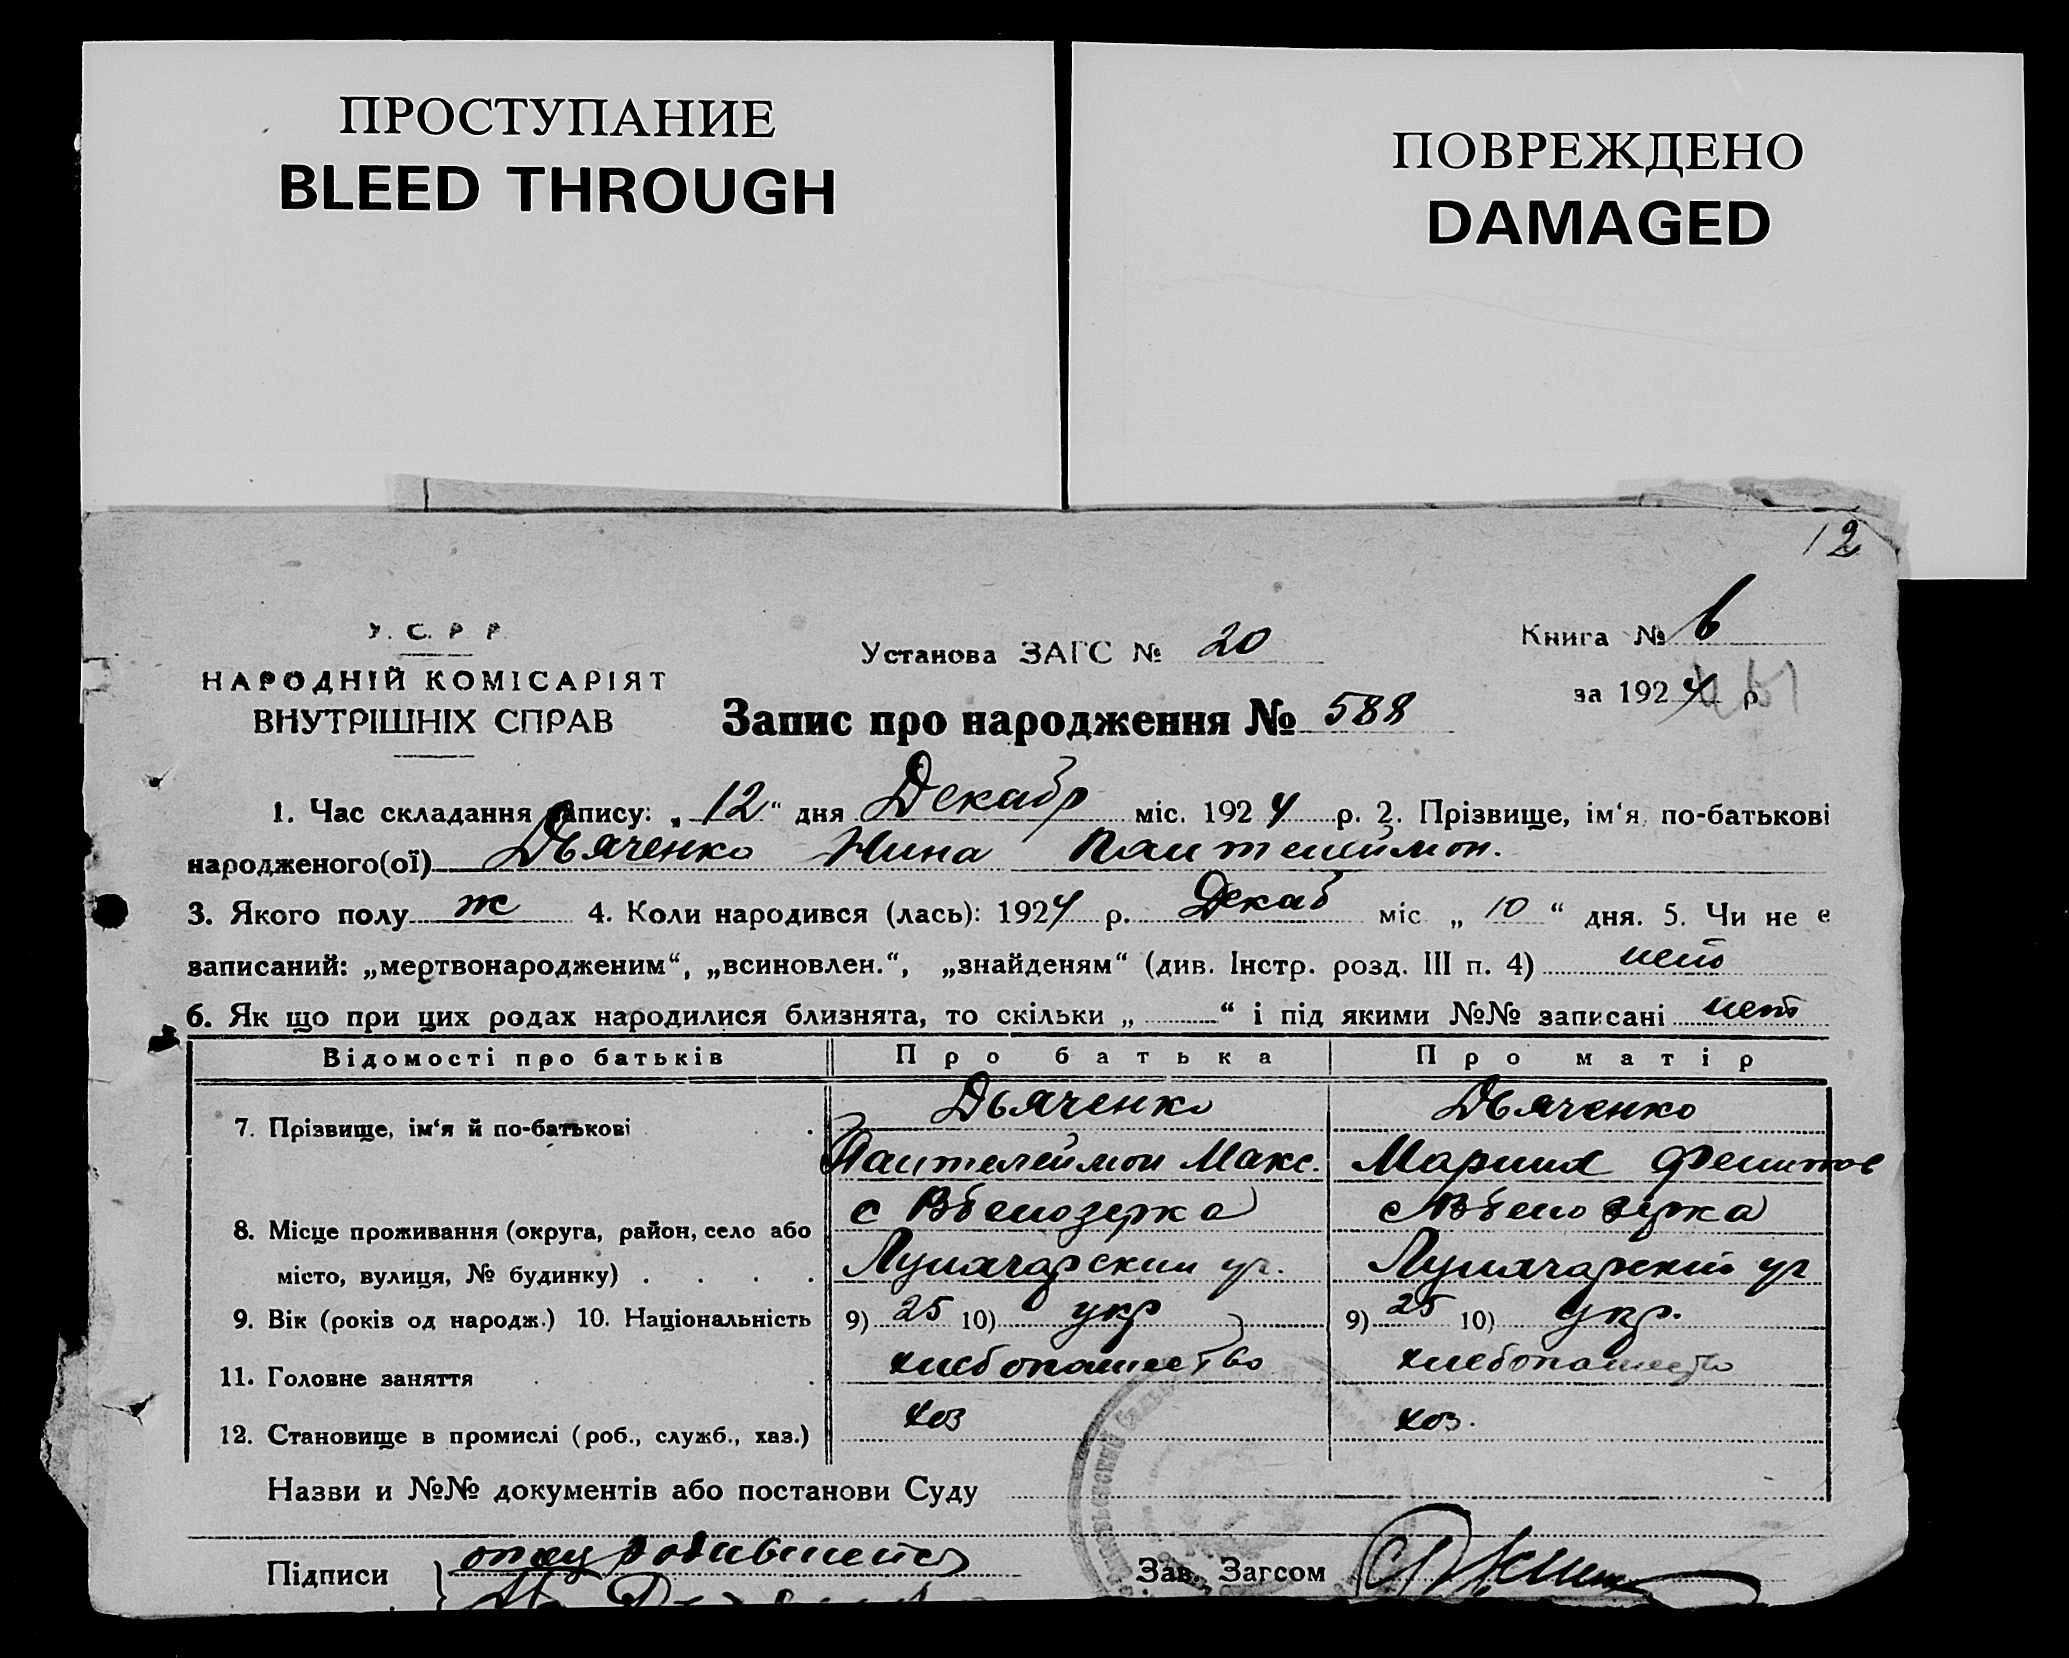 ПРОСТУПАНИЕ
BLEED THROUGH
ПОВРЕЖДЕНО
DAMAGED
12
У. С. Р. Р.
НАРОДНІЙ КОМІСАРІЯТ
ВНУТРІШНІХ СПРАВ
Установа ЗАГС № 20
Книга № 6
за 1924 р.
Запис про народження № 588
1. Час складання запису: „12“ дня Декабр міс. 1924 р. 2. Прізвище, ім‘я, по-батькові
народженого(ої) Дьяченко Нина Пантелеймон.
3. Якого полу ж 4. Коли народився (лась): 1924 р. Декаб міс „10“ дня. 5. Чи не є
записаний: „мертвонародженим“, „всиновлен.“, „знайденям“ (див. Інстр. розд. III п. 4) нет
6. Як що при цих родах народилися близнята, то скільки „ “ і під якими №№ записані нет
Відомості про батьків Про батька Про матір
7. Прізвище, ім‘я й по-батькові Дьяченко Дьяченко
Пантелеймон Макс. Мария
8. Місце проживання (округа, район, село або с Вбелозерка с Вбелозерка
місто, вулиця, № будинку) Луначарский ул. Луначарский ул
9. Вік (років од народж.) 10. Національність 9) 25 10) укр 9) 25 10) укр.
11. Головне заняття хлебопашество хлебопашество
12. Становище в промислі (роб., служб., хаз.) хоз хоз.
Назви и №№ документів або постанови Суду
Підписи отец Зав. Загсом